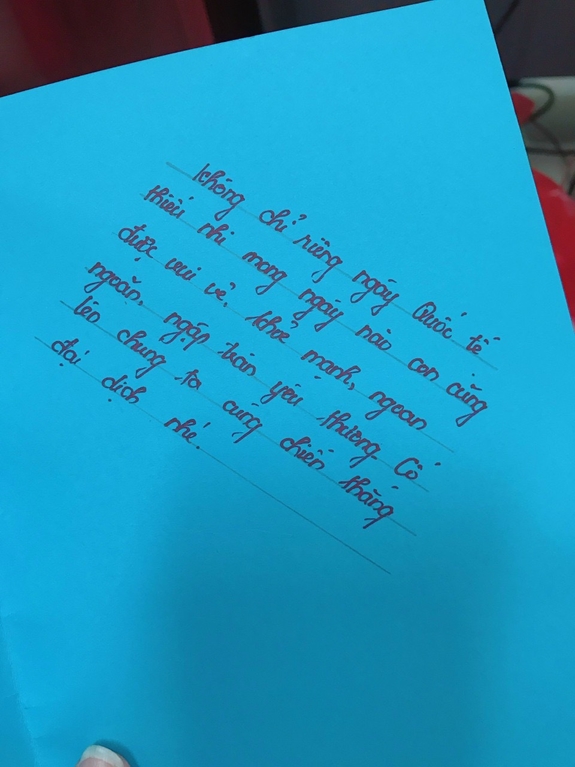 Không chỉ riêng ngày Quốc tế
thiếu nhi mong ngày nào con cũng
được vui vẻ. khỏe mạnh, ngoan
ngoãn, ngập tràn yêu thương. Cố
lên chúng ta cùng chiến thắng
đại dịch nhé.